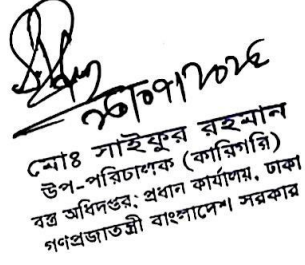 মোঃ সাইফুর রহমান
উপ-পরিচালক (কারিগরি)
বস্ত্র অধিদপ্তর; প্রধান কার্যালয়, ঢাকা
গণপ্রজাতন্ত্রী বাংলাদেশ। সরকার